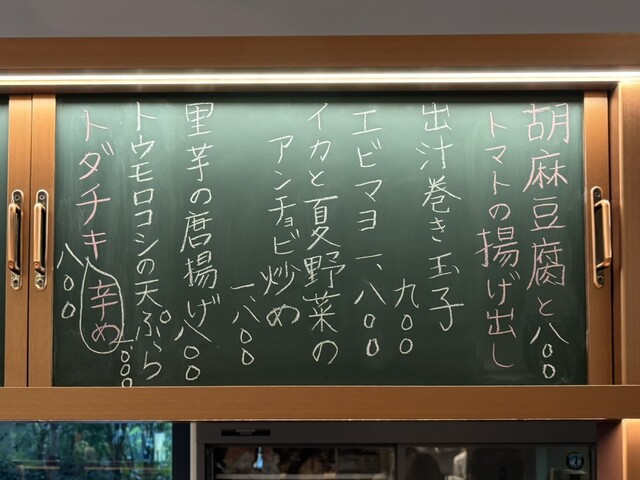 胡麻豆腐と八〇〇
トマトの揚げ出し
出汁巻き玉子
九〇〇
エビマヨ 一、八〇〇
イカと夏野菜の
アンチョビ炒め
一、八〇〇
里芋の唐揚げ八〇〇
トウモロコシの天ぷら
一、〇〇〇
トダチキ辛め
八〇〇